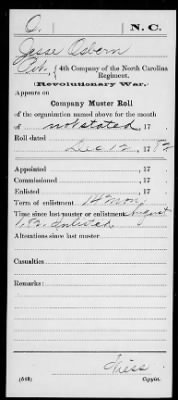 O. N.C.
Jesse Osborn
Pvt., 4th Company of the North Carolina
Regiment.
(Revolutionary War.)
Appears on
Company Muster Roll
of the organization named above for the month
of not stated, 17
Roll dated
Dec 12, 1782
Appointed , 17
Commissioned , 17
Enlisted , 17
Term of enlistment 18 mon,
Time since last muster or enlistment August
1782 Enlisted
Alterations since last muster
Casualties
Remarks:
(648) Copyist.